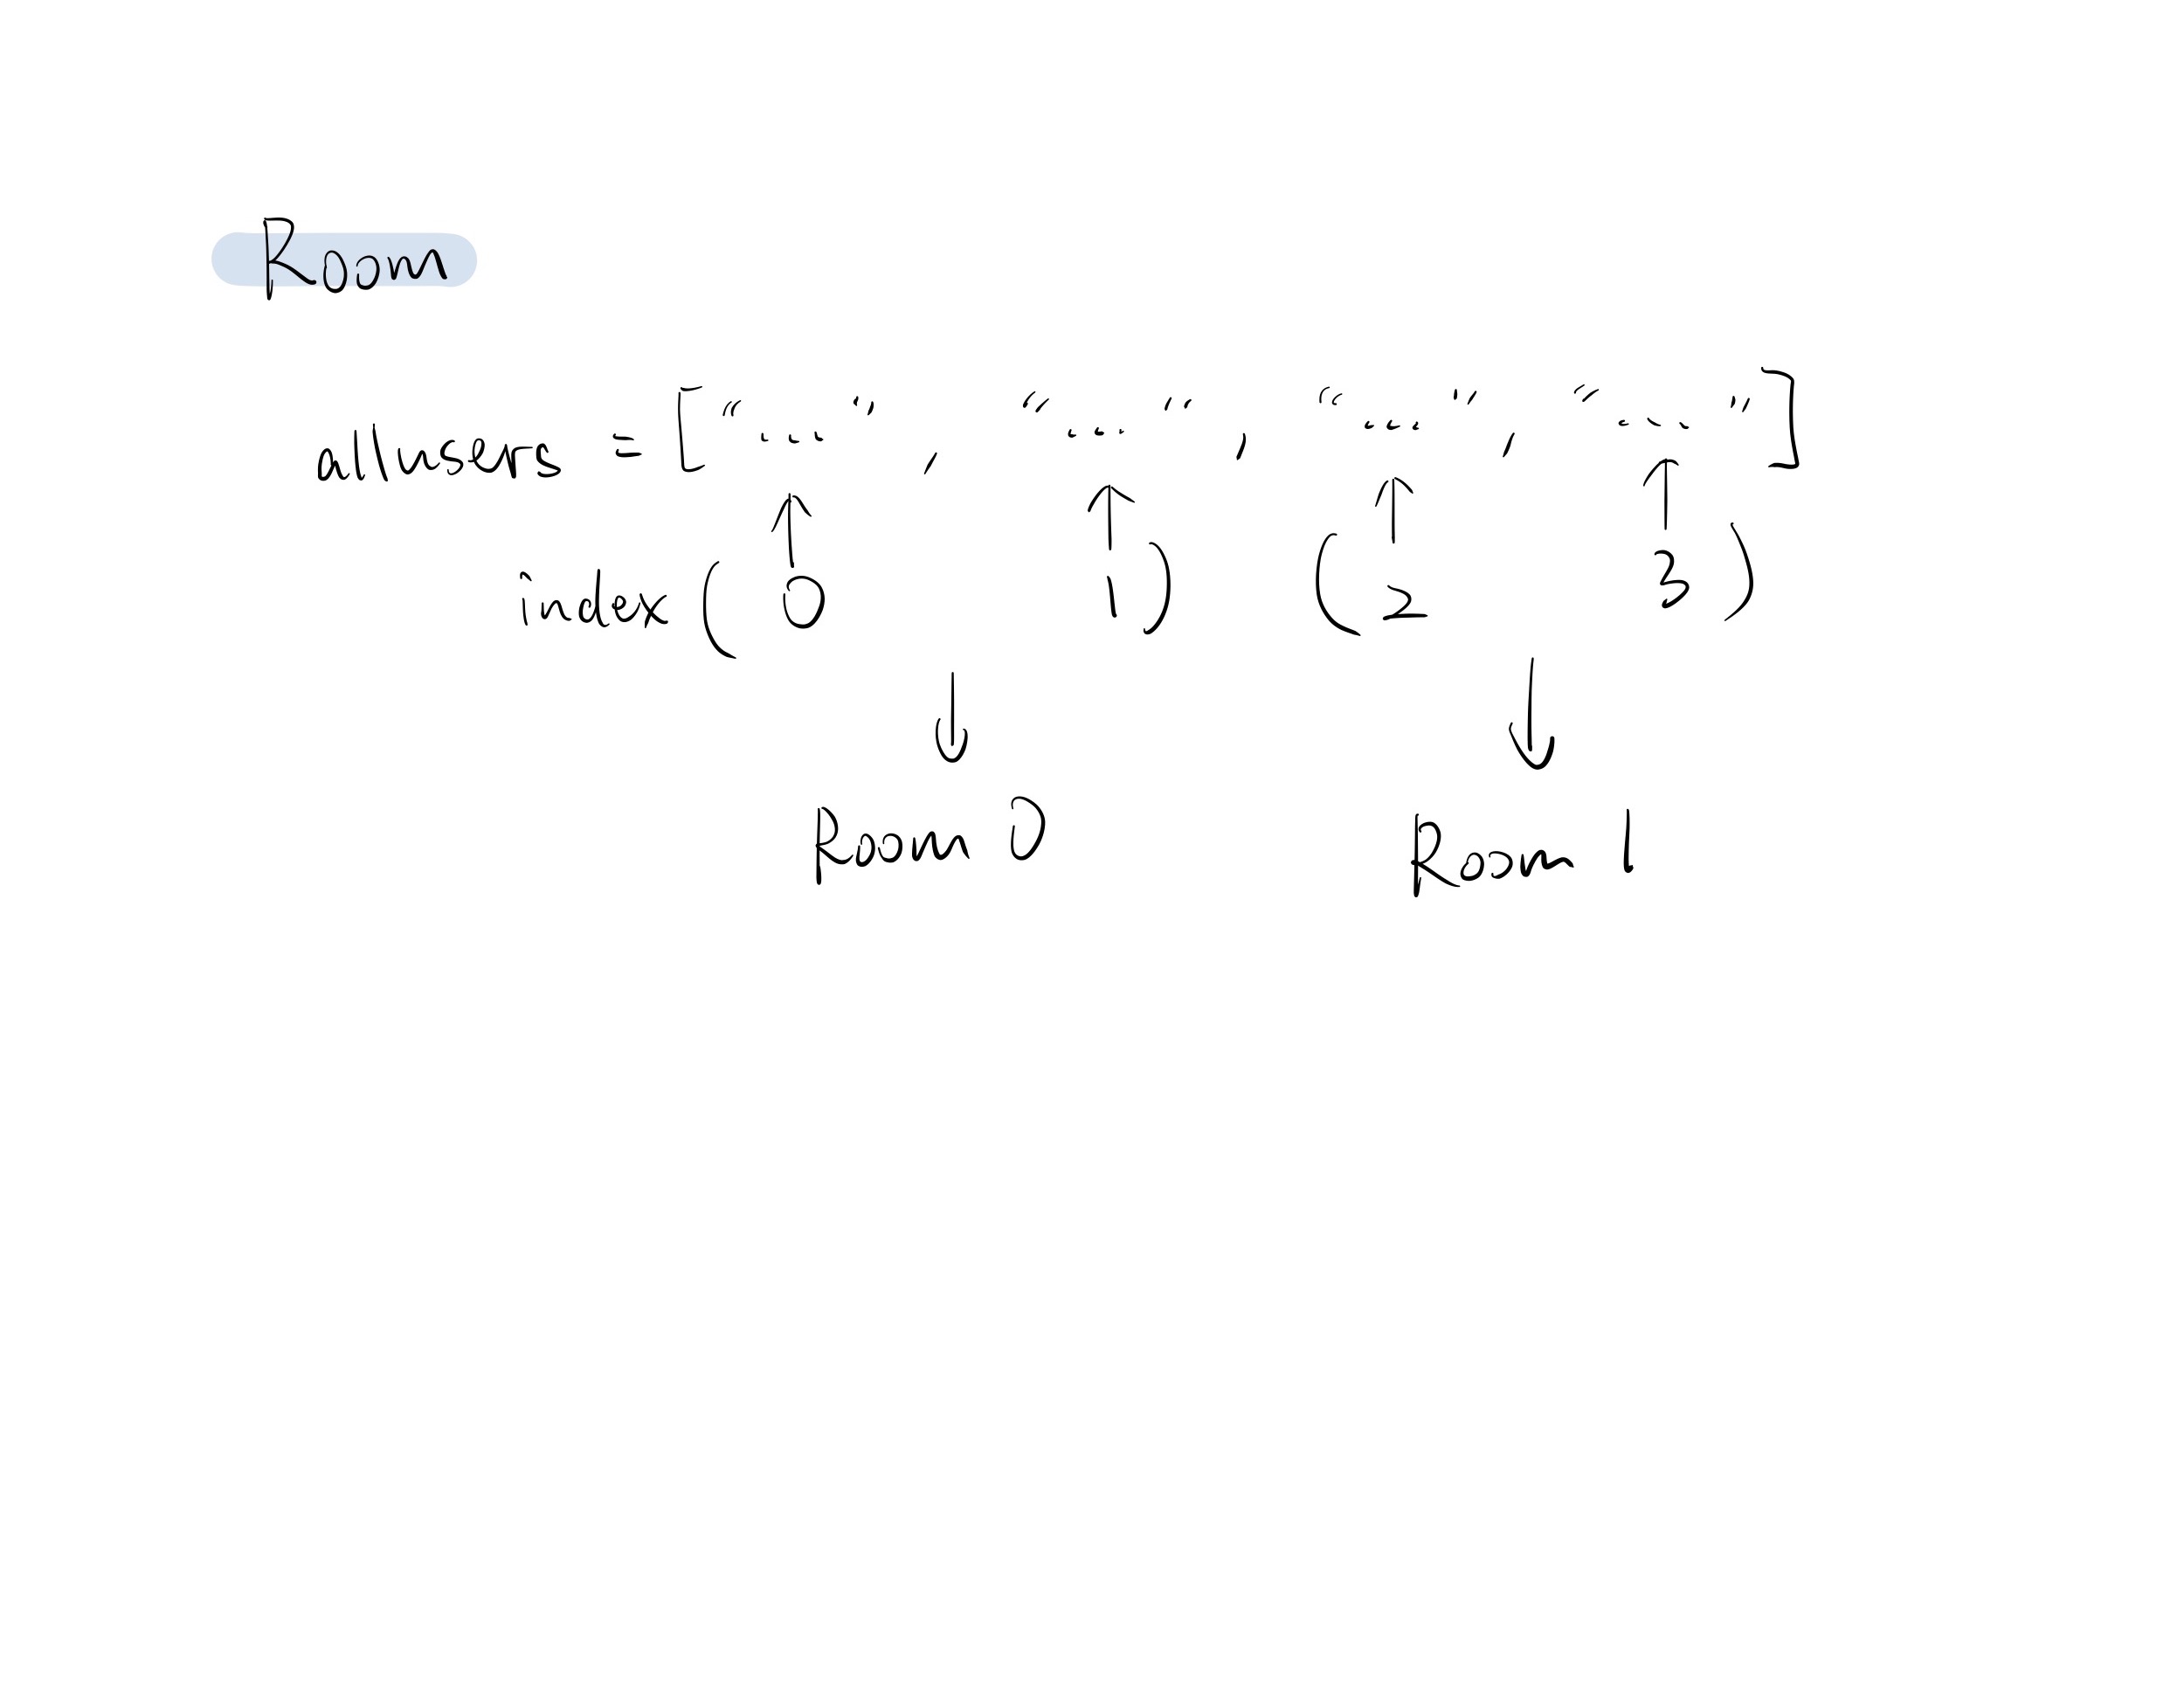 Room
allusers = ["...", "...", "...", "..."]
index (0 1) (2 3)
Room 0 Room 1